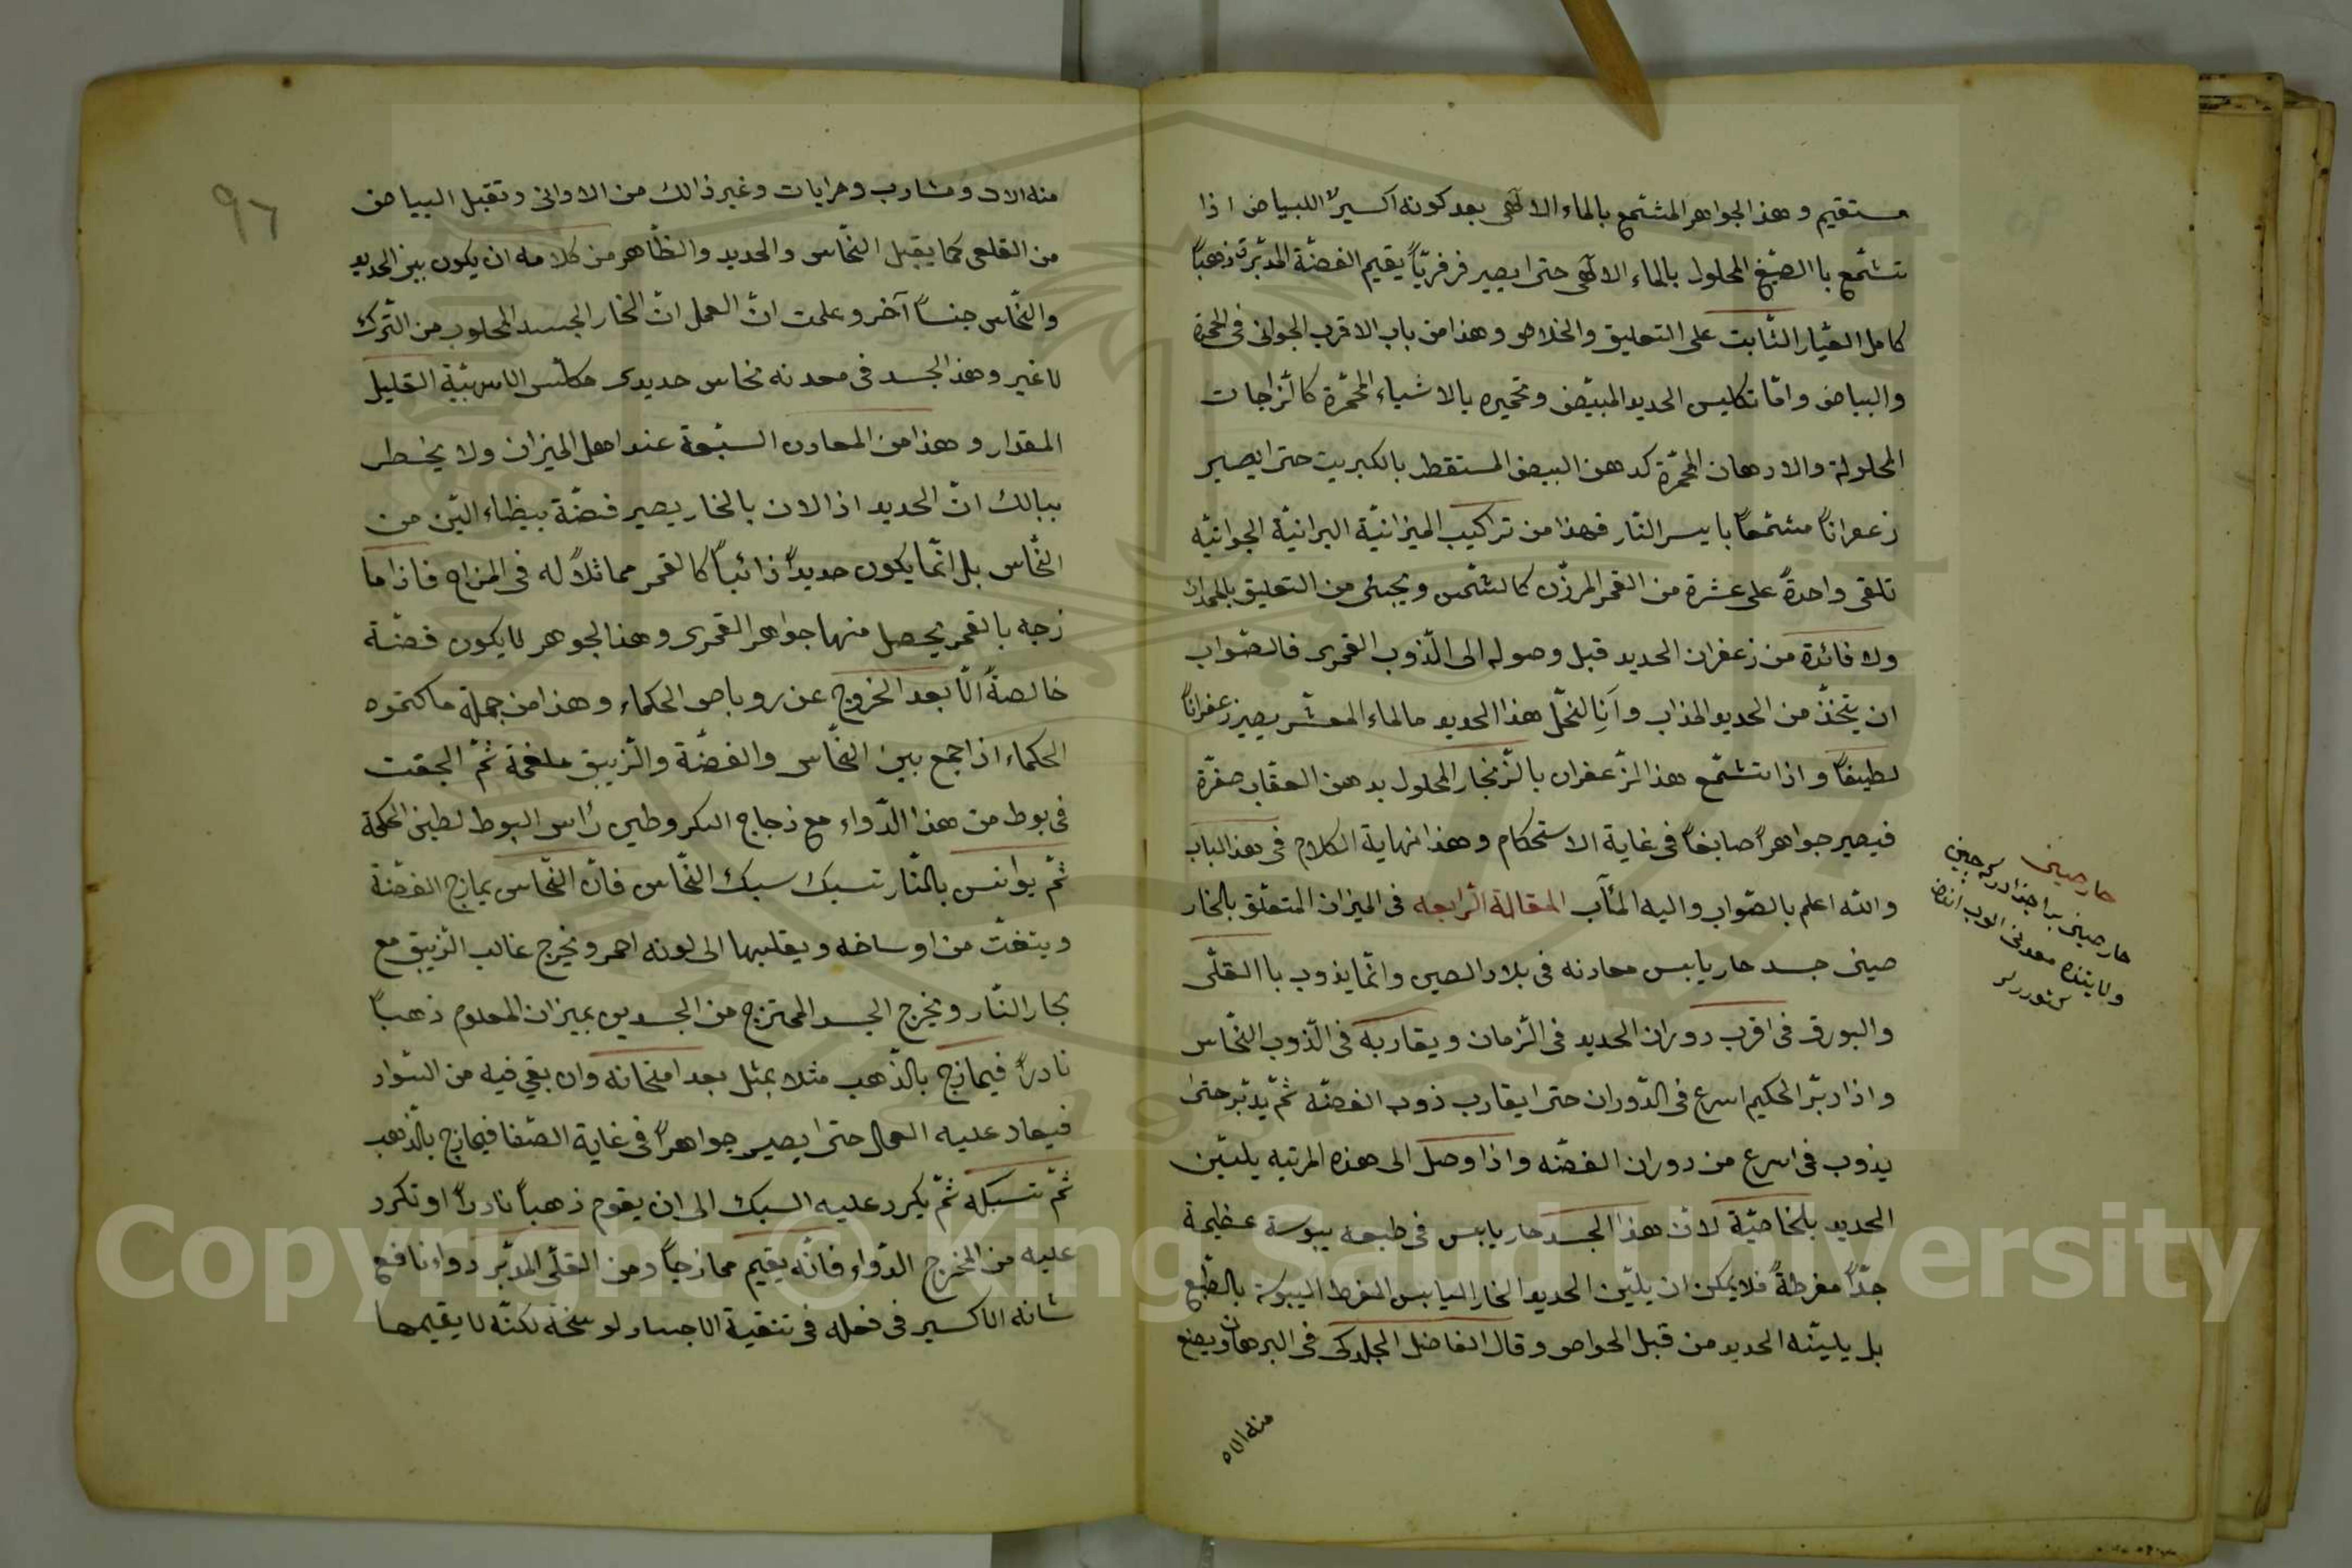 مستقيم وهذا الجواهر المشتمع بالماء الالٓهى بعد كونه اكسيرًا للبياض اذا
تشمّع با الصبّغ المحلول بالماء الالٓهى حتى ايصير فرفريّاً يقيم الفضّة المدبّرة ذهباً
كامل العيّار الثّابت على التعليق والخلاص وهذا من باب الاقرب الجوانى فى الحمرة
والبياض وامّا تكليس الحديد المبيّض وتحميره بالاشياء المحمّرة كالزّاجات
المحلولة والادهان المحمّرة كدهن البيض المستقطر بالكبريت حتى ايصير
زعفراناً مشمّعاً بايسر النّار فهذا من تراكيب الميزانيّة البرانيّة الجوانيّه
تلقى واحدةً على عشرة من القمر المرزّن كالشّمس ويجيئ من التعليق
ولا فائدة من زعفران الحديد قبل وصوله الى الذّوب القمرى فالصّواب
ان يتّخذ من الحديد المذاب هذا الحديد مالماء المعشر يصير زعفراناً
لطيفاً واذا تشمّع هذا الزّعفران بالزّنجار المحلول بدهن العقاب صفرّة
فيصير جواهراً صابغاً فى غاية الاستحكام وهذا نهاية الكلام فى هذا الباب
والله اعلم بالصّواب واليه المئآب المقالة الرابعه فى الميزان المتعلّق بالخار
صينى جسد حار يابس معادنه فى بلاد الصين وانّما يذوب با القلّى
والبورق فى اقرب دوران الحديد فى الزّمان ويقاربه فى الذّوب النّحاس
واذا دبّر الحكيم اسرع فى الدّوران حتى ايقارب ذوب الفضّه ثمّ يدبّر حتى
يذوب فى اسرع من دوران الفضّه واذا وصل الى هذه المرتبه يليّن
الحديد بالخاصيّة لانّ هذا الجسد حار يابس فى طبعه يبوسة عظيمة
جدّاً مفرطةً فلا يمكن ان يليّن الحديد الحار اليابس المفرط اليبوسة بالطّبع
بل يليّنه الحديد من قبل الخواص وقال الفاضل الجلدكى فى البرهان ويصنع
منه الاه
حارصينى
حارصينى
منه الات ومشارب ومرايات وغير ذالك من الاوانى وتقبل البياض
من القلعى كما يقبل النّحاس والحديد والظّاهر من كلامه ان يكون بين الحديد
والنّحاس جنساً آخر وعلمت انّ العمل انّ الخار الجسد المجلوب من التّرك
لاغير وهذا الجسد فى معدنه نحاس حديدى القليل
المقدار وهذا من المعادن السّبعة عند اهل الميزان ولا يخطر
ببالك انّ الحديد اذ الان بالخار يصير فضّة بيظاء اليّن من
النّحاس بل انّما يكون حديداً ذائباً كالقمر مماثلاً له فى المزاج فاذا ما
زجه بالقمر يحصل منها جواهر القمرى وهذا الجوهر لايكون فضّة
خالصةً الّا بعد الخروج عن روباص الحكماء وهذا من جملة ما كتموه
الحكماء اذا جمع بين النّحاس والفضّة والزّيبق ملغمة ثمّ الجقت
فى بوط من هذا الدّواء مع زجاج البكر وطين رأس البوط لطين الحكمة
ثمّ يوانس بالنّار تسبك سبك النّحاس فانّ النّحاس يمازج الفضّة
وينقّت من اوساخه ويقلبها الى لونه احمر ويخرج غالب الزّيبق مع
بحار النّار ويخرج الجسد الممتزج من الجسدين بميزان المعلوم ذهباً
نادراً فيمازج بالذّهب مثلا بمثل بعد امتحانه وان بقى فيه من السّواد
فيعاد عليه العمال حتى ايصير جواهراً فى غاية الصّفا فيمازج بالذّهب
ثمّ تسبكه ثمّ يكرد عليه السبك الى ان يقوم ذهباً نادراً او تكرد
عليه من المخرج الدّواء فانّه يقيم ممازجاً ومن القلّى المدّبّر دواء نافع
شانه الاكسير فى فعله فى تنقية الاجساد لوسخة لكنّه لا يقيمها
٩٦